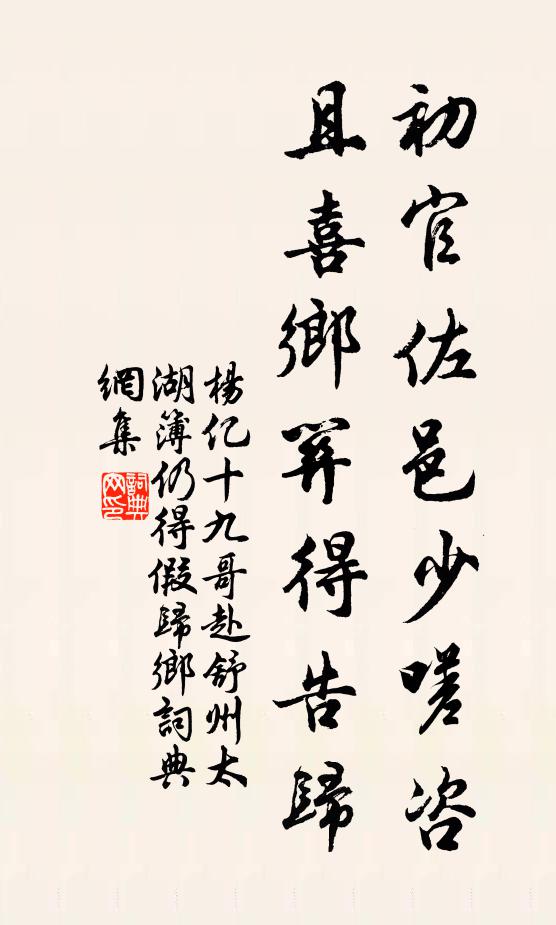 初官佐邑少嗟咨
且喜鄉關得告歸
楊亿十九哥赴舒州太
湖簿仍得假歸鄉詞典
網集
詞典
网印